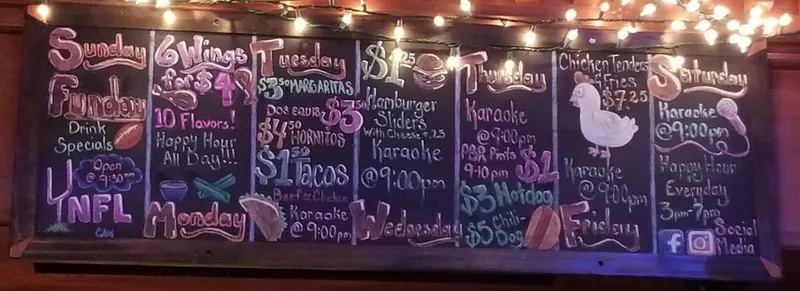 Sunday
Funday
Drink
Specials
Open
@ 9:30am
NFL
6 Wings
for $4
10 Flavors!
Happy Hour
All Day!!!
Monday
Tuesday
$3.50 MARGARITAS
DOS EQUIS $3.50
$4.50 HORNITOS
$1.50 Tacos
Beef or Chicken
Karaoke
@ 9:00pm
$1.25
Hamburger
Sliders
with Cheese +.25
Karaoke
@ 9:00pm
Wednesday
Thursday
Karaoke
@ 9:00pm
PBR Pints
9-10pm $1
$3 Hotdog
$5 Chili-
Dog
Chicken Tenders
& Fries
$7.25
Karaoke
@ 9:00pm
Friday
Saturday
Karaoke
@ 9:00pm
Happy Hour
Everyday
3pm-7pm
f Social
Media